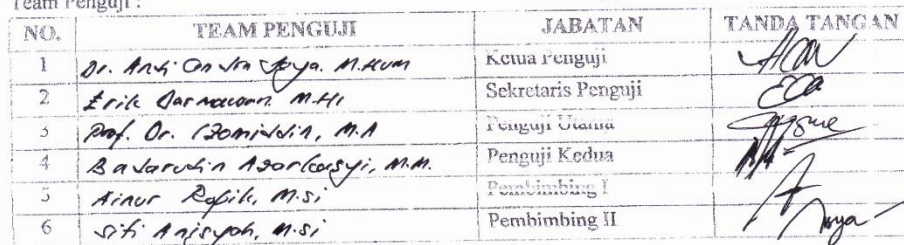 Team Penguji :
NO. TEAM PENGUJI JABATAN TANDA TANGAN
1 Dr. M.Hum Ketua Penguji
2 Erik Darmawan, M.HI Sekretaris Penguji
3 Prof. Dr. M.A Penguji Utama
4 Badarudin Azarkasyi, M.M. Penguji Kedua
5 Ainur Rofik, M.Si Pembimbing I
6 Siti Anisyah, M.Si Pembimbing II